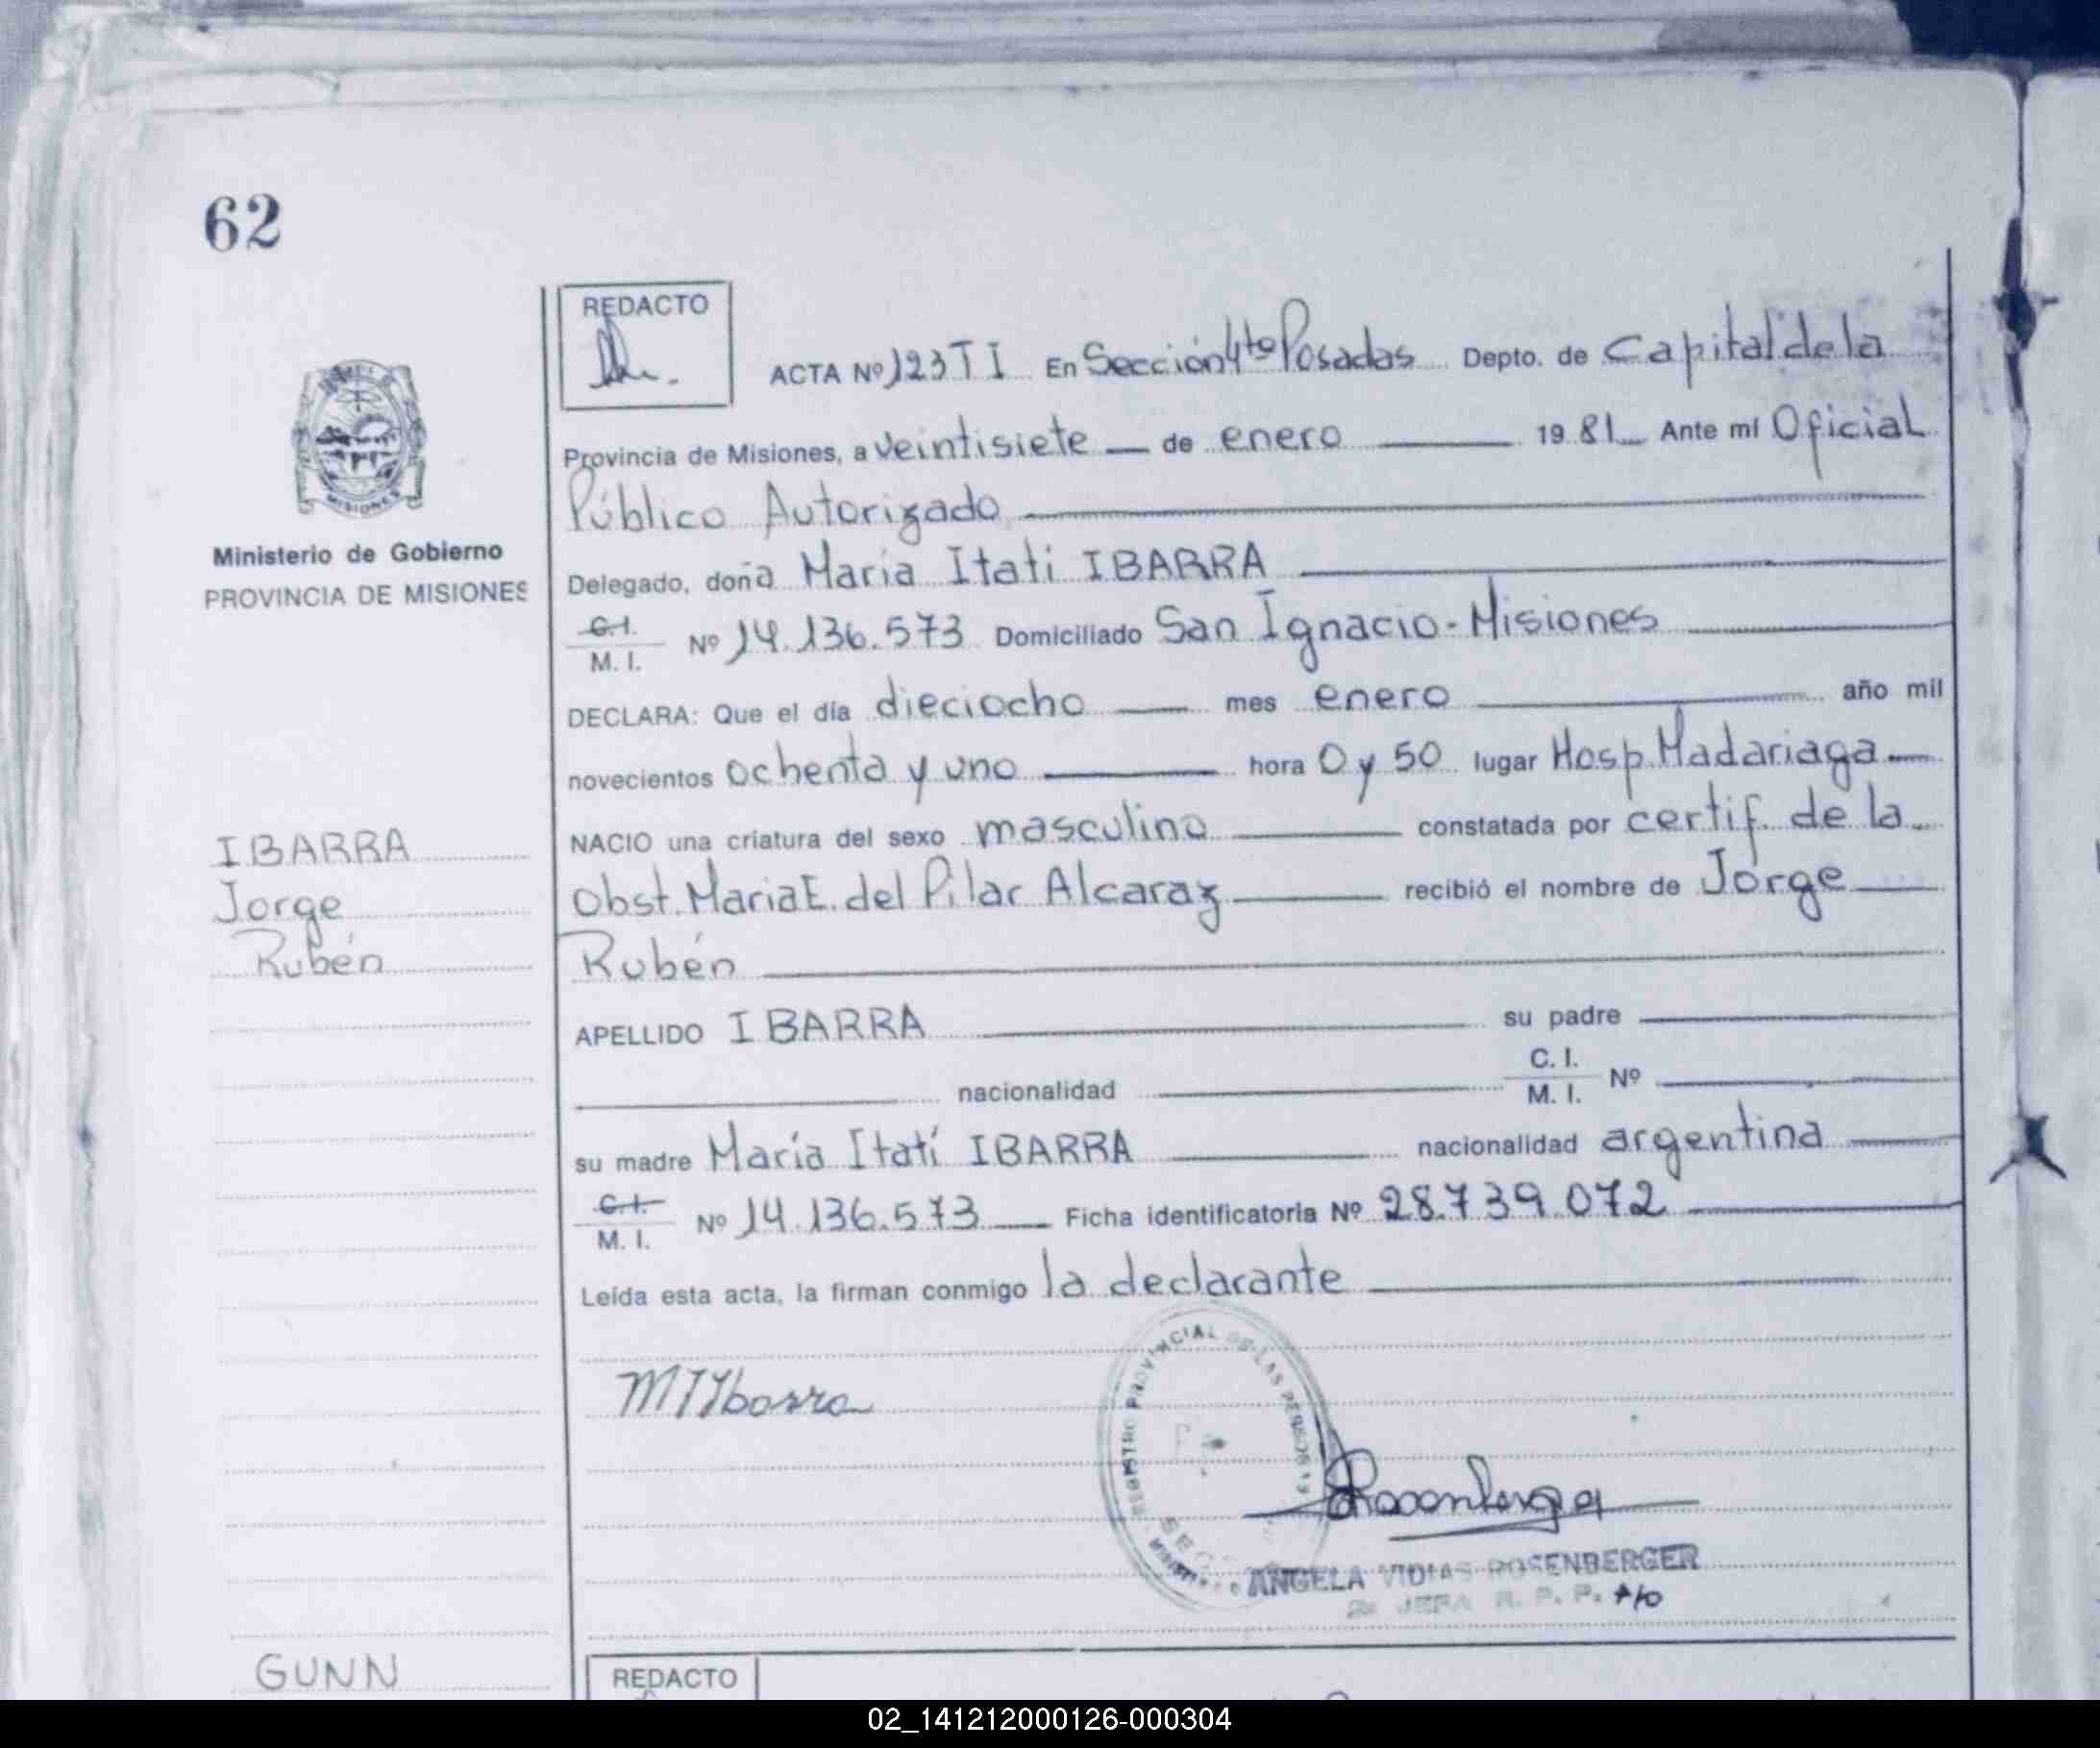 62
REDACTO
ACTA Nº 123 T I En Sección 4ta Posadas Depto. de Capital de la
Provincia de Misiones, a veintisiete de enero 1981 Ante mí Oficial
Público Autorizado
Delegado, doña María Itatí IBARRA
C.I.
M. I. Nº 14.136.573 Domiciliado San Ignacio - Misiones
DECLARA: Que el día dieciocho mes enero año mil
novecientos ochenta y uno hora 0 y 50 lugar Hosp. Madariaga
NACIO una criatura del sexo masculino constatada por certif. de la
Obst. María E. del Pilar Alcaraz recibió el nombre de Jorge
Rubén
APELLIDO IBARRA su padre
nacionalidad C. I.
M. I. Nº
su madre María Itatí IBARRA nacionalidad argentina
C.I.
M. I. Nº 14.136.573 Ficha identificatoria Nº 28.739.072
Leída esta acta, la firman conmigo la declarante
M I Ibarra
REGISTRO PROVINCIAL DE LAS PERSONAS
ANGELA VIDIAS ROSENBERGER
JEFA R. P. P.
Ministerio de Gobierno
PROVINCIA DE MISIONES
MISIONES
IBARRA
Jorge
Rubén
GUNN
REDACTO
02_141212000126-000304